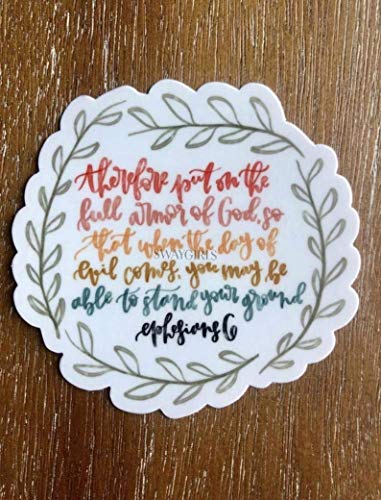 therefore put on the
full armor of God, so
that when the day of
SWAYGIRLS
evil comes, you may be
able to stand your ground
ephesians 6